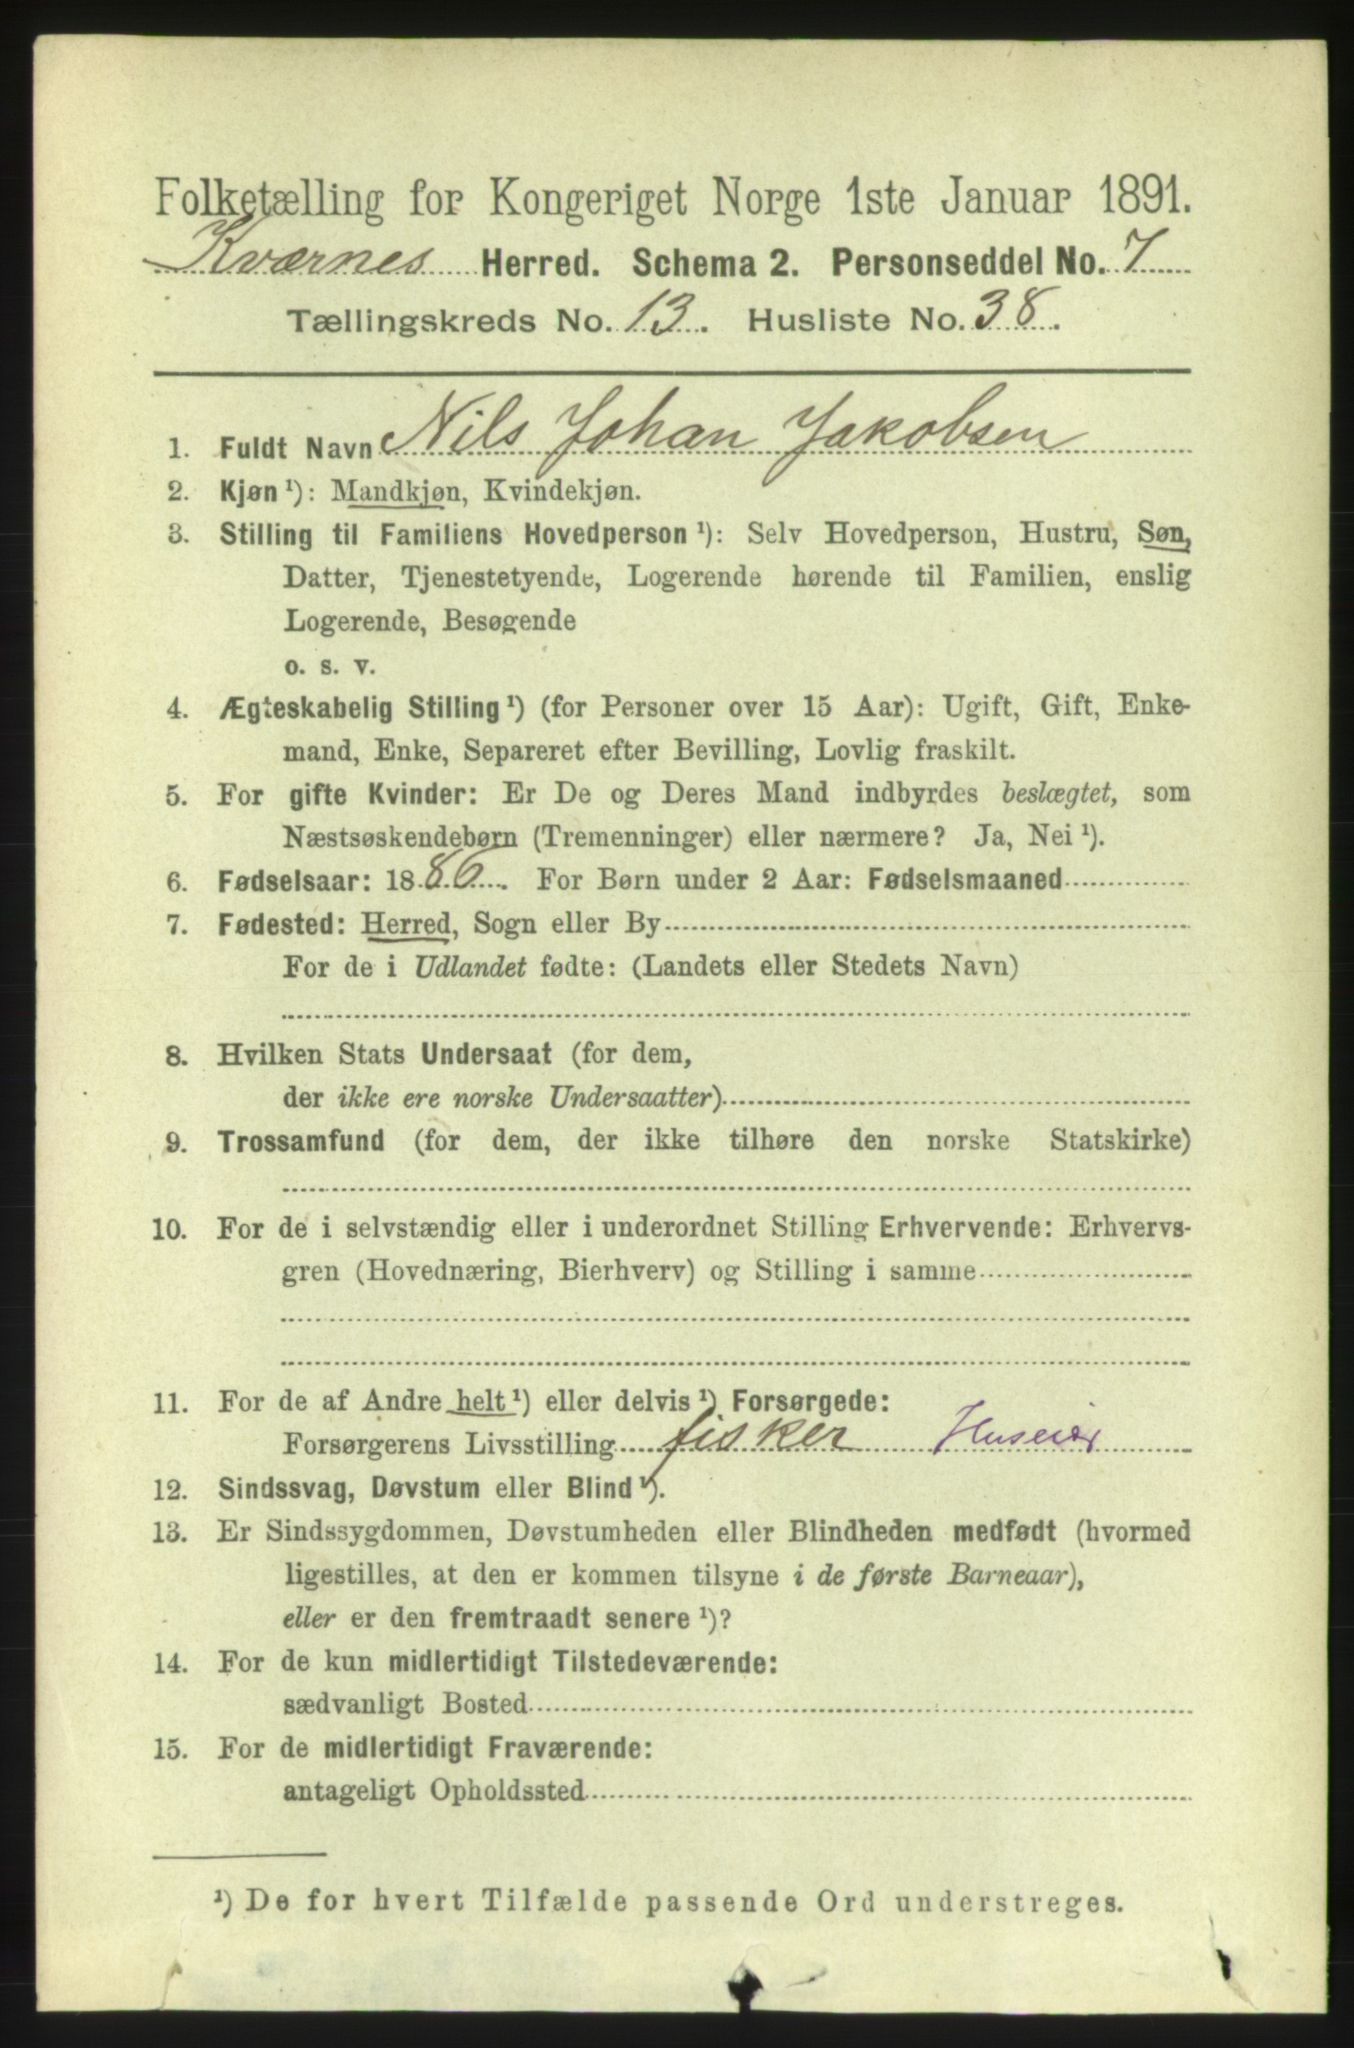 Folketælling for Kongeriget Norge 1ste Januar 1891.
Kværnes Herred. Schema 2. Personseddel No. 7
Tællingskreds No. 13. Husliste No. 38.
1. Fuldt Navn Nils Johan Jakobsen
2. Kjøn ¹): Mandkjøn, Kvindekjøn.
3. Stilling til Familiens Hovedperson ¹): Selv Hovedperson, Hustru, Søn,
Datter, Tjenestetyende, Logerende hørende til Familien, enslig
Logerende, Besøgende
o. s. v.
4. Ægteskabelig Stilling ¹) (for Personer over 15 Aar): Ugift, Gift, Enke-
mand, Enke, Separeret efter Bevilling, Lovlig fraskilt.
5. For gifte Kvinder: Er De og Deres Mand indbyrdes beslægtet, som
Næstsøskendebørn (Tremenninger) eller nærmere? Ja, Nei ¹).
6. Fødselsaar: 1886. For Børn under 2 Aar: Fødselsmaaned
7. Fødested: Herred, Sogn eller By
For de i Udlandet fødte: (Landets eller Stedets Navn)
8. Hvilken Stats Undersaat (for dem,
der ikke ere norske Undersaatter)
9. Trossamfund (for dem, der ikke tilhøre den norske Statskirke)
10. For de i selvstændig eller i underordnet Stilling Erhvervende: Erhvervs-
gren (Hovednæring, Bierhverv) og Stilling i samme
11. For de af Andre helt ¹) eller delvis ¹) Forsørgede:
Forsørgerens Livsstilling fisker Huseier
12. Sindssvag, Døvstum eller Blind ¹).
13. Er Sindssygdommen, Døvstumheden eller Blindheden medfødt (hvormed
ligestilles, at den er kommen tilsyne i de første Barneaar),
eller er den fremtraadt senere ¹)?
14. For de kun midlertidigt Tilstedeværende:
sædvanligt Bosted
15. For de midlertidigt Fraværende:
antageligt Opholdssted
¹) De for hvert Tilfælde passende Ord understreges.